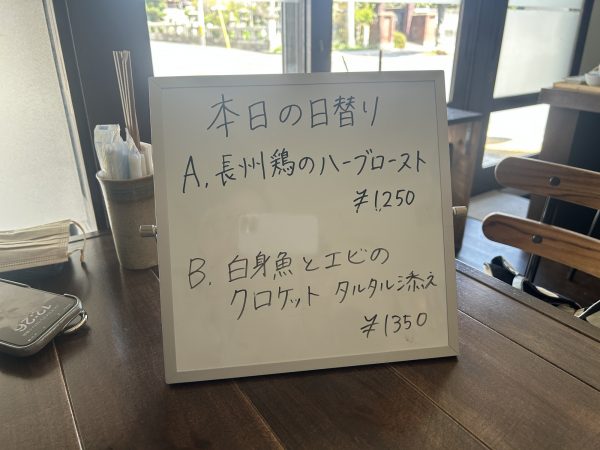 本日の日替り
A. 長州鶏のハーブロースト
¥1,250
B. 白身魚とエビの
クロケット タルタル添え
¥1350
12:26